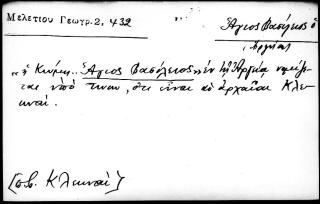 Μελετίου Γεωγρ. 2, 432
Ἅγιος Βασίλειος ὁ
Ἀργείας
"ἡ Κώμη Ἅγιος Βασίλειος" ἐν τῇ Ἀργείᾳ νομίζε-
ται ὑπό τινων, ὅτι εἶναι αἱ ἀρχαῖαι Κλε-
ωναί.
[σβ. Κλεωναί]